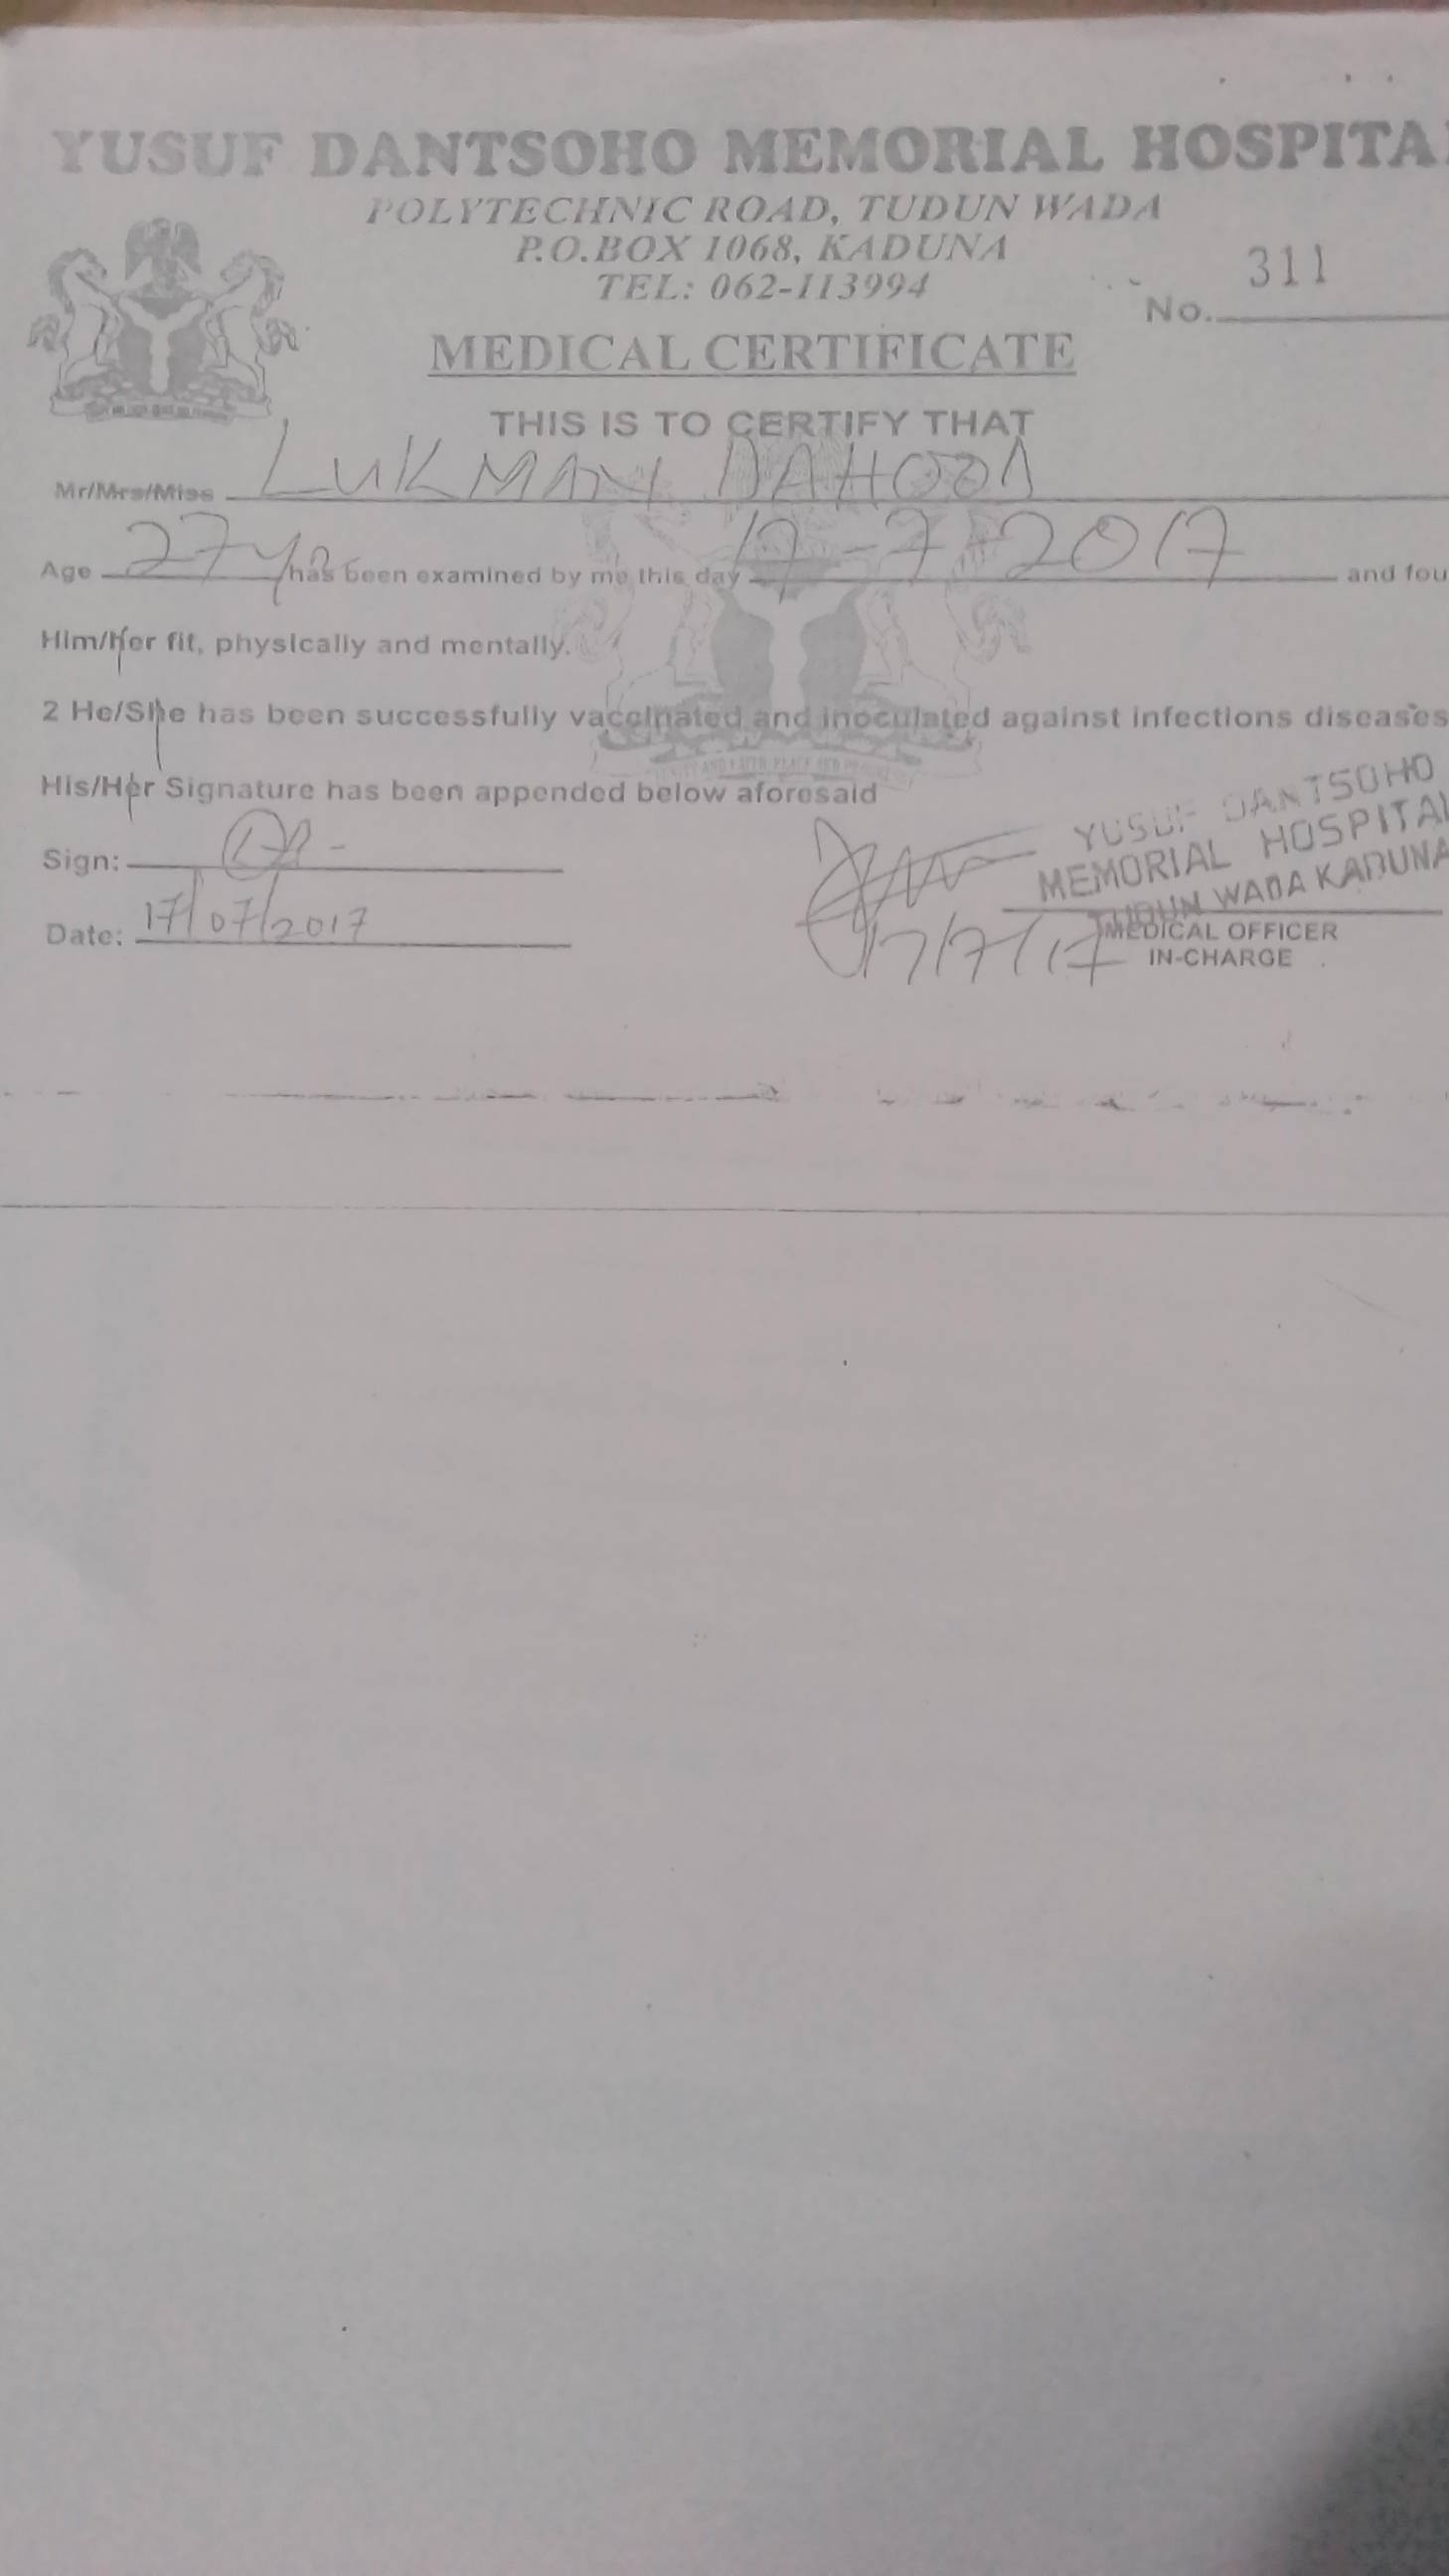 YUSUF DANTSOHO MEMORIAL HOSPITA
POLYTECHNIC ROAD, TUDUN WADA
P.O.BOX 1068, KADUNA
TEL: 062-113994
No. 311
MEDICAL CERTIFICATE
THIS IS TO CERTIFY THAT
Mr/Mrs/Miss LUKMAN DAHOOD
Age 27yrs has been examined by me this day 17-7-2017 and fou
Him/Her fit, physically and mentally.
2 He/She has been successfully vaccinated and inoculated against infections diseases
His/Her Signature has been appended below aforesaid
Sign:
Date: 17/07/2017
YUSUF DANTSOHO
MEMORIAL HOSPITAL
TUDUN WADA KADUNA
17/7/17
MEDICAL OFFICER
IN-CHARGE